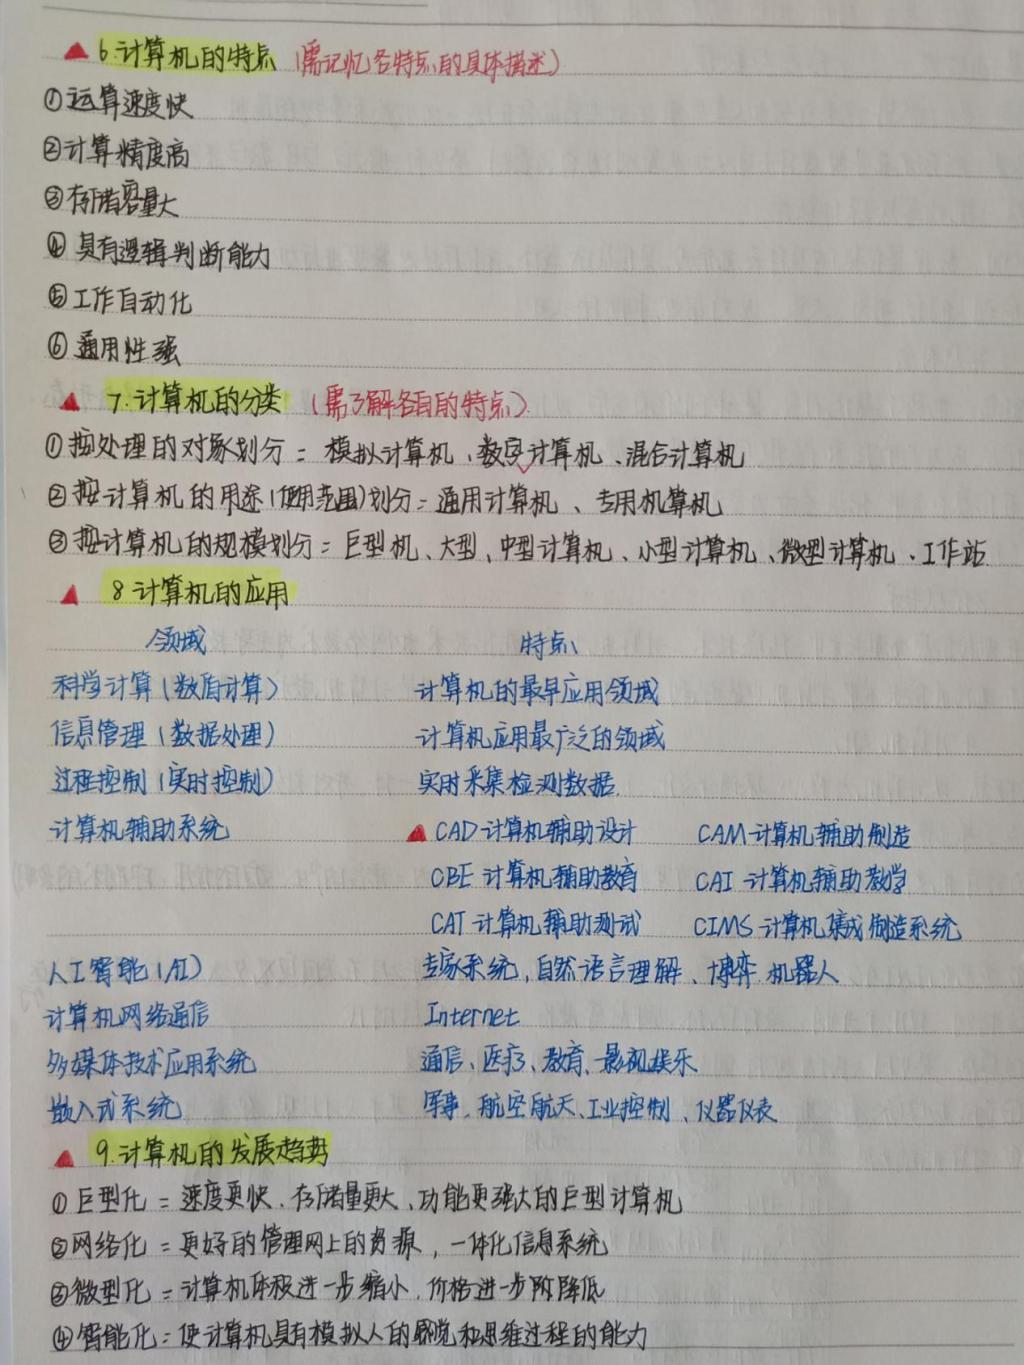 6.计算机的特点 (需记忆各特点的具体描述)
①运算速度快
②计算精度高
③存储容量大
④具有逻辑判断能力
⑤工作自动化
⑥通用性强
7.计算机的分类 (需了解各自的特点)
①按处理的对象划分=模拟计算机、数字计算机、混合计算机
②按计算机的用途(使用范围)划分=通用计算机、专用机算机
③按计算机的规模划分=巨型机、大型、中型计算机、小型计算机、微型计算机、工作站
8.计算机的应用
领域 特点
科学计算(数值计算) 计算机的最早应用领域
信息管理(数据处理) 计算机应用最广泛的领域
过程控制(实时控制) 实时采集检测数据.
计算机辅助系统 CAD-计算机辅助设计 CAM-计算机辅助制造
CBE-计算机辅助教育 CAI-计算机辅助教学
CAT-计算机辅助测试 CIMS-计算机集成制造系统
人工智能(AI) 专家系统,自然语言理解、博弈.机器人
计算机网络通信 Internet
多媒体技术应用系统 通信、医疗、教育、影视娱乐
嵌入式系统 军事、航空航天、工业控制、仪器仪表
9.计算机的发展趋势
①巨型化=速度更快、存储量更大、功能更强大的巨型计算机
②网络化=更好的管理网上的资源,一体化信息系统
③微型化=计算机体积进一步缩小,价格进一步降低
④智能化=使计算机具有模拟人的感觉和思维过程的能力